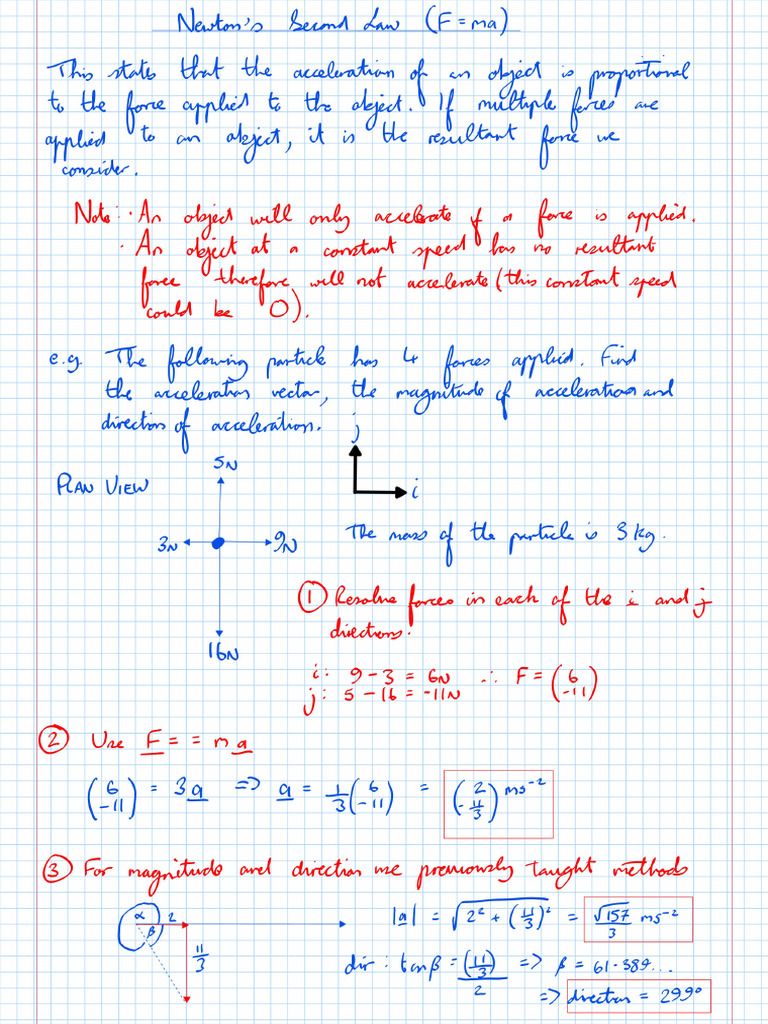 Newton's Second Law (F=ma)
This states that the acceleration of an object is proportional
to the force applied to the object. If multiple forces are
applied to an object, it is the resultant force we
consider.
Note: · An object will only accelerate if a force is applied.
· An object at a constant speed has no resultant
force therefore will not accelerate (this constant speed
could be 0).
e.g. The following particle has 4 forces applied. Find
the acceleration vector, the magnitude of acceleration and
direction of acceleration.
j
i
PLAN VIEW
5N
3N
9N
16N
The mass of the particle is 3kg.
① Resolve forces in each of the i and j
directions.
i: 9 - 3 = 6N ∴ F = (6 -11)
j: 5 - 16 = -11N
② Use F = = ma
(6 -11) = 3a => a = 1/3 (6 -11) = (2 -11/3) ms⁻²
③ For magnitude and direction use previously taught methods
α 2
β
11/3
|a| = √(2² + (11/3)²) = √157/3 ms⁻²
dir: tanβ = (11/3)/2 => β = 61.389...
=> direction = 299°